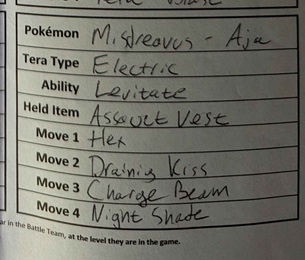 Pokémon Misdreavus - Aja
Tera Type Electric
Ability Levitate
Held Item Assault Vest
Move 1 Hex
Move 2 Draining Kiss
Move 3 Charge Beam
Move 4 Night Shade
ar in the Battle Team, at the level they are in the game.